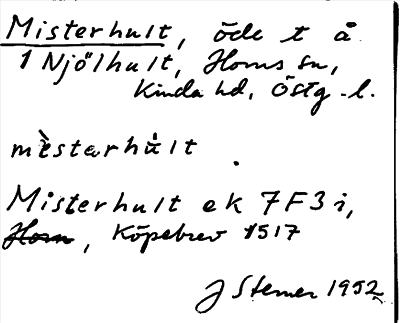 Misterhult, öde t å
1 Njölhult, Horns sn,
Kinda hd, Östg. l.
mèstarhùlt
Misterhult ek 7F3i,
Horn, Köpebrev 1517
J Stemer 1952